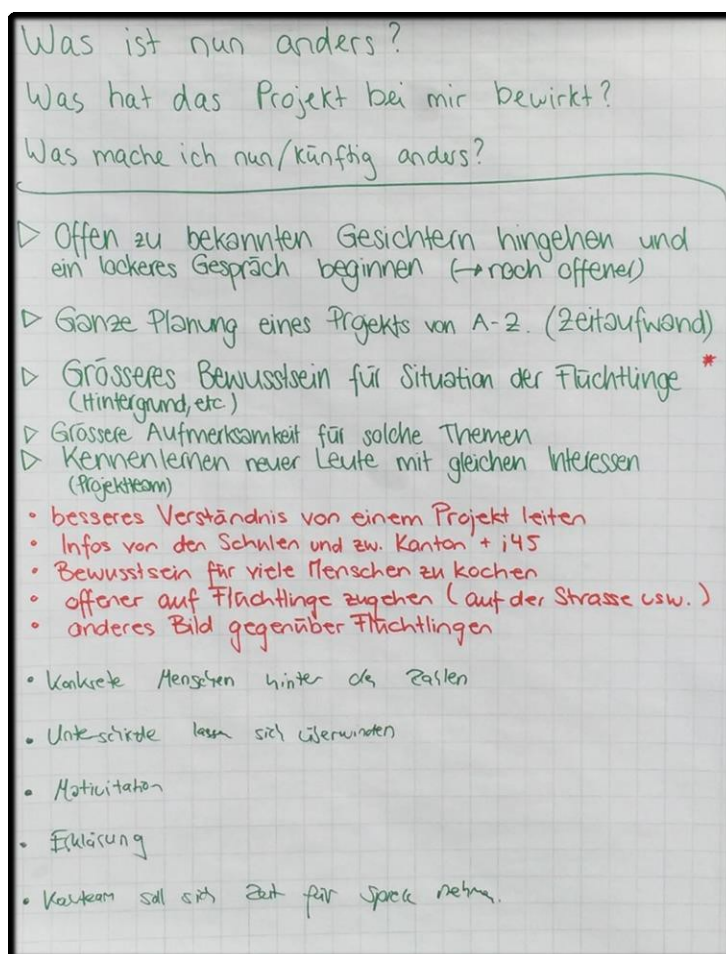 Was ist nun anders?
Was hat das Projekt bei mir bewirkt?
Was mache ich nun/künftig anders?
▷ Offen zu bekannten Gesichtern hingehen und
ein lockeres Gespräch beginnen (→ noch offener)
▷ Ganze Planung eines Prjekts von A-Z. (Zeitaufwand)
▷ Grösseres Bewusstsein für Situation der Flüchtlinge *
(Hintergrund, etc.)
▷ Grössere Aufmerksamkeit für solche Themen
▷ Kennenlernen neuer Leute mit gleichen Interessen
(Projektteam)
• besseres Verständnis von einem Projekt leiten
• Infos von den Schulen und zw. Kanton + i45
• Bewusstsein für viele Menschen zu kochen
• offener auf Flüchtlinge zugehen (auf der Strasse usw.)
• anderes Bild gegenüber Flüchtlingen
• Konkrete Menschen hinter den Zahlen
• Unterschiede lassen sich überwinden
•
• Erklärung
• soll sich Zeit für nehmen.